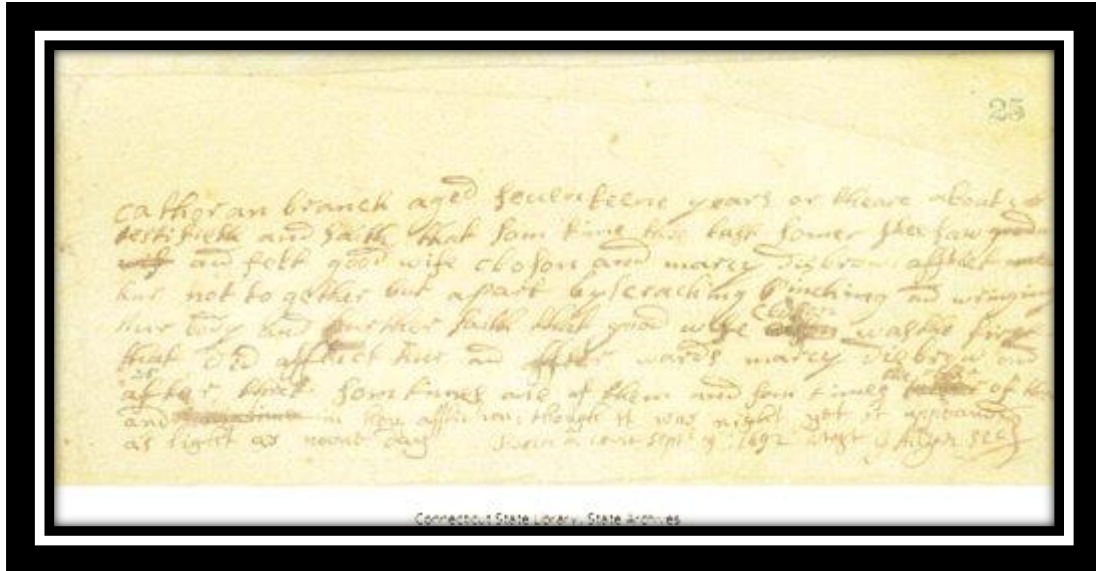 25
catheran branch aged seventeene years or theare about
testifieth and saith that som time this last somer she saw good
and felt good wife closon and marcy disbrow afflict
hur not together but apart by scraching pinching and wringing
hur body and further saith that good wife was the first
that did afflict hur and after wards marcy disbrow and
after that somtimes one of them and som times of them
and in ther affliction though it was night yet it appeared
as light as noone day Sworn in court Sept 19 1692 Attest Allyn Sec
Connecticut State Library, State Archives